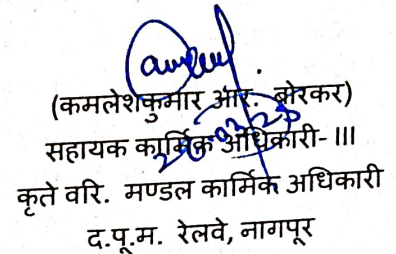 (कमलेशकुमार आर. बोरकर)
सहायक कार्मिक अधिकारी- III
कृते वरि. मण्डल कार्मिक अधिकारी
द.पू.म. रेलवे, नागपूर